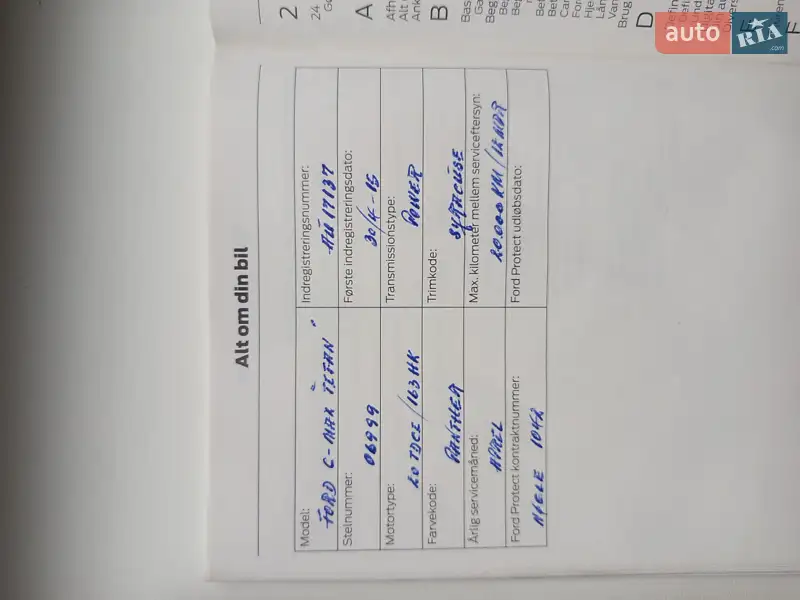 Alt om din bil
Model:
FORD C-MAX "TITAN"
Indregistreringsnummer:
Stelnummer:
06999
Første indregistreringsdato:
30/4-15
Motortype:
2.0 TDCI / 163 HK
Transmissionstype:
POWER
Farvekode:
PANTHER
Trimkode:
SYRACUSE
Årlig servicemåned:
APRIL
Max. kilometer mellem serviceeftersyn:
20.000 KM / 12 MDR
Ford Protect kontraktnummer:
1042
Ford Protect udløbsdato:
2
24
A
Alt
B
D
Brug
auto RIA
.com